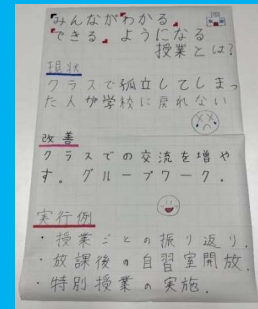 「みんながわかる」
「できる」ようになる
授業とは?
現状
クラスで孤立してしまっ
た人が学校に戻れない
改善
クラスでの交流を増や
す。グループワーク。
実行例
・授業ごとの振り返り.
・放課後の自習室開放.
・特別授業の実施.